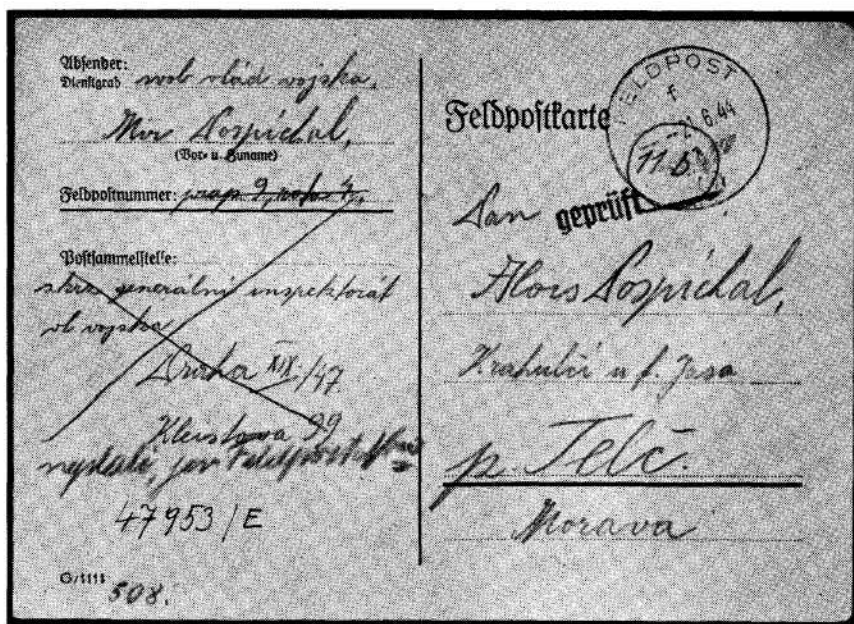 Absender:
Dienstgrad svob vlád vojska,
Mir Pospíchal,
(Vor- u. Zuname)
Feldpostnummer: prap. 9, roh. 4,
Postsammelstelle:
skrz generální inspektorát
vl vojska
Praha XIX./47.
Kleistova 99
Feldpost
47953/E
G/1111
508.
Feldpostkarte
FELDPOST
f
-21.6.44
11 5
geprüft
Pan
Alois Pospíchal,
Krahulčí u f. Jasa
p. Telč.
Morava